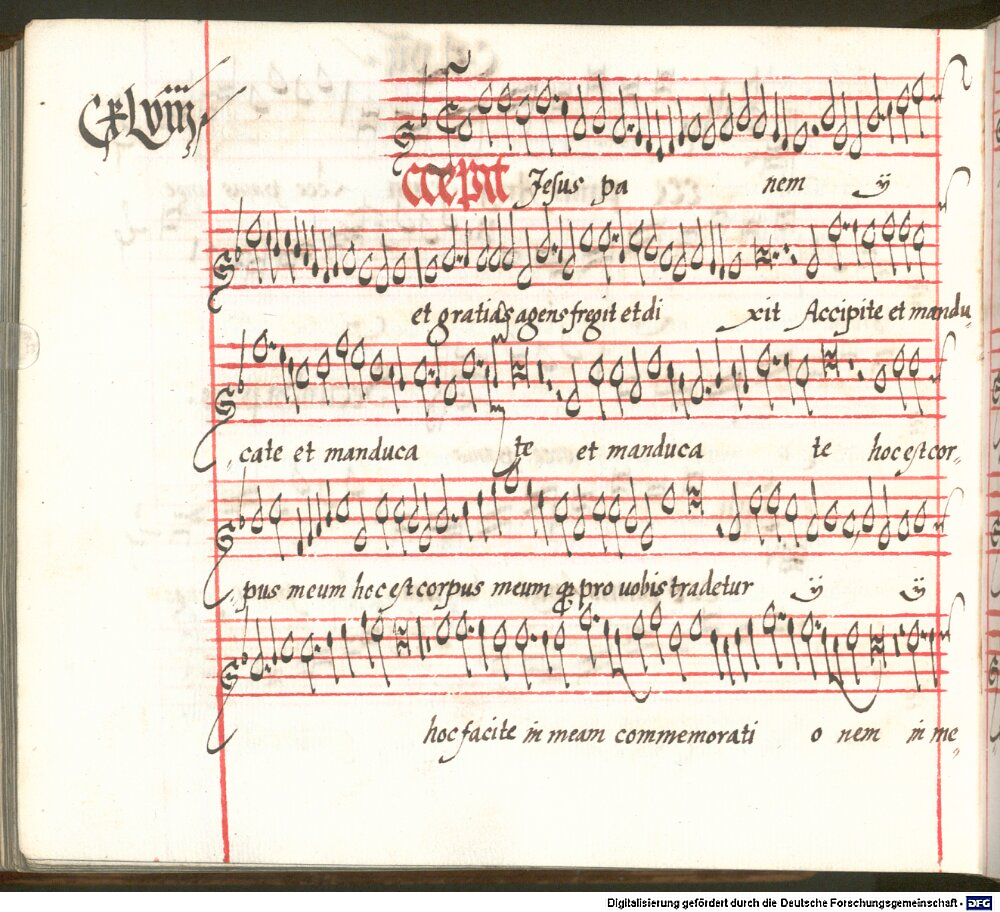 CXLViii
ccepit Jesus pa nem ij
et gratias agens fregit et di xit Accipite et mandu
cate et manduca te et manduca te hoc est cor
pus meum hoc est corpus meum qđ pro uobis tradetur ij ij
hoc facite in meam commemorati o nem in me
Digitalisierung gefördert durch die Deutsche Forschungsgemeinschaft - DFG